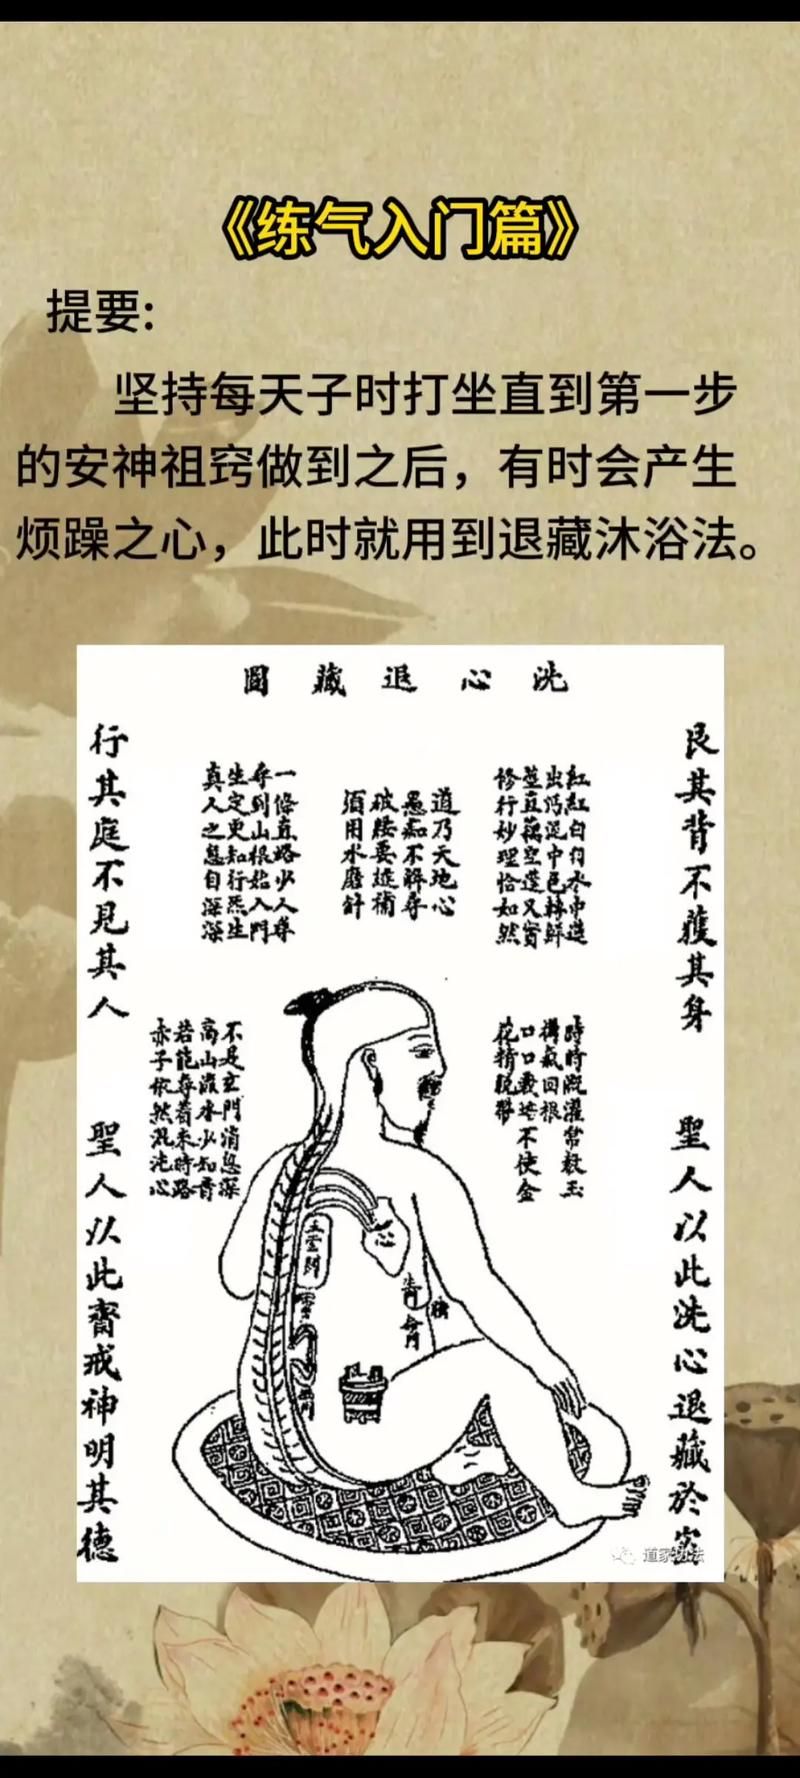 《练气入门篇》
提要:
坚持每天子时打坐直到第一步
的安神祖窍做到之后，有时会产生
烦躁之心，此时就用到退藏沐浴法。
洗心退藏圖
艮其背不獲其身
聖人以此洗心退藏於密
紅紅白白水中蓮
出污泥中色轉鮮
莖直藕空蓬又實
修行妙理恰如然
道乃天地心
愚痴不解尋
破
須用水磨針
一條直路少人尋
尋到山根始入門
坐定更知行炁主
真人之息自深深
行其庭不見其人
聖人以此齋戒神明其德
時時溉灌常教玉
樹氣回根
花精脫蒂
不是玄門消息深
高山流水少知音
若能尋着來時路
赤子依然混沌心
心
命門
道家功法